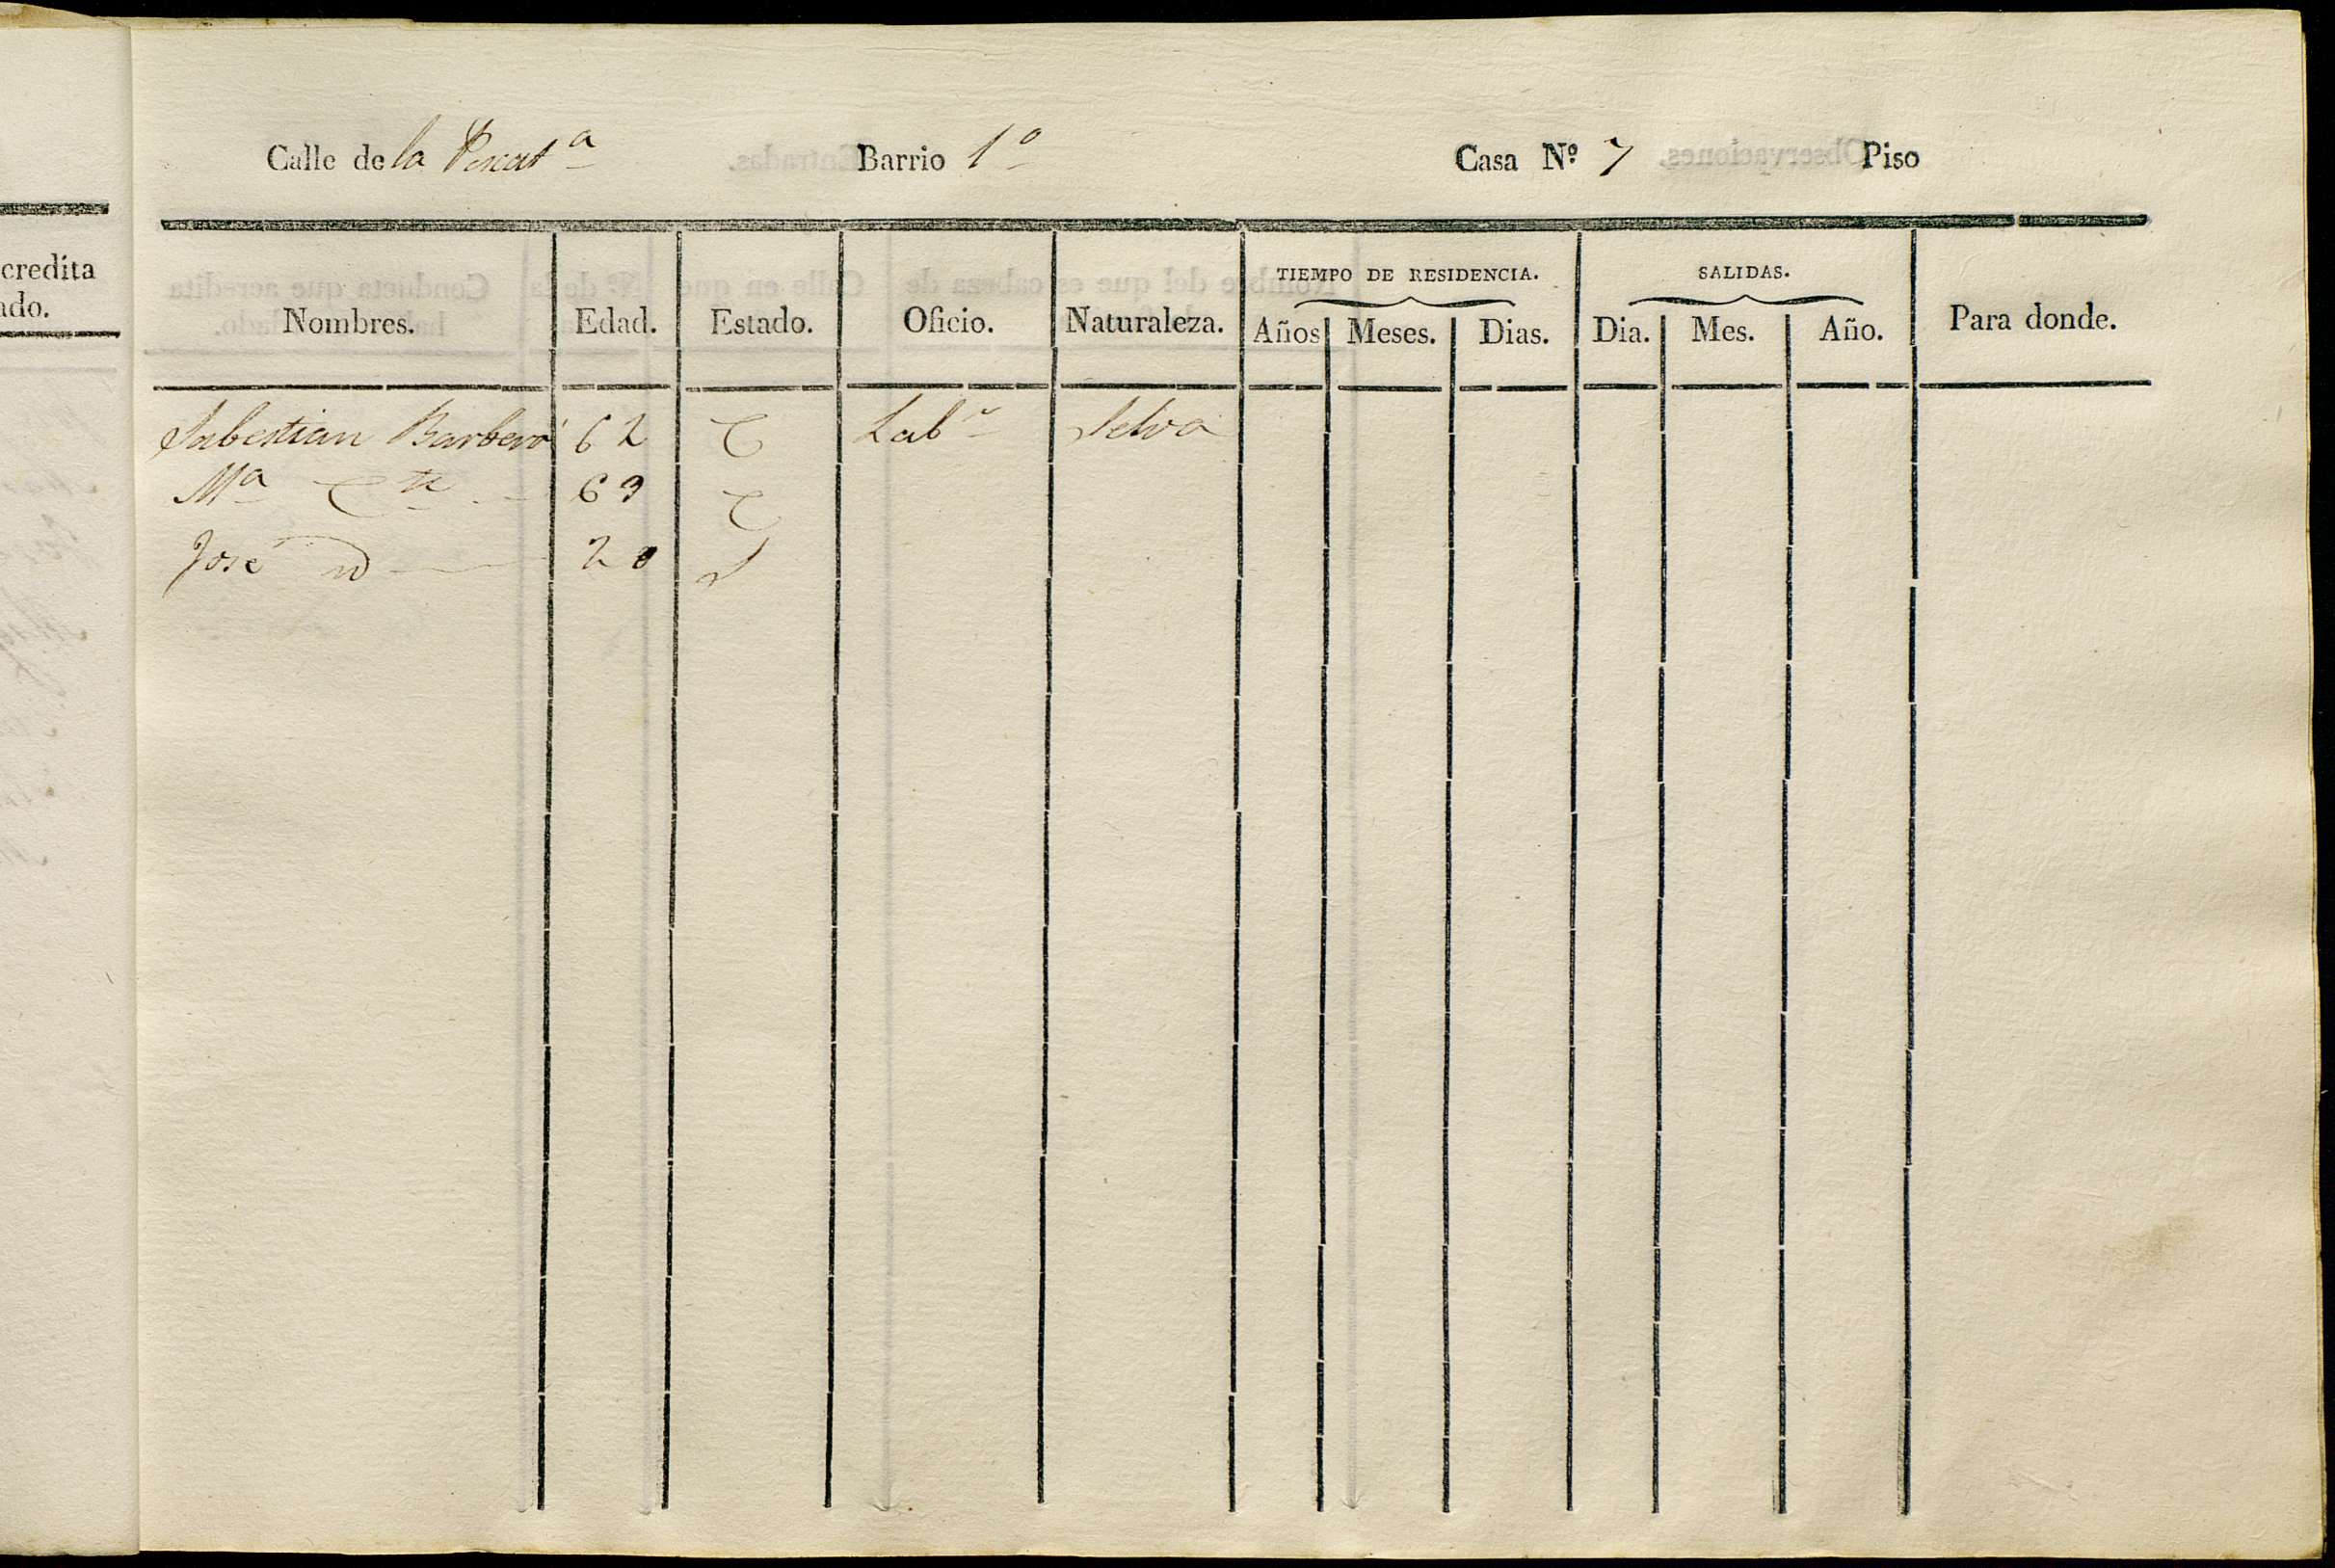 Calle de la Pescatª Barrio 1º Casa Nº 7 Piso
credita
ado.
TIEMPO DE RESIDENCIA. SALIDAS.
Nombres. Edad. Estado. Oficio. Naturaleza. Años Meses. Dias. Dia. Mes. Año. Para donde.
Sabestian Barberó 62 C Labr Selva
Mª 63 C
José id 20 S